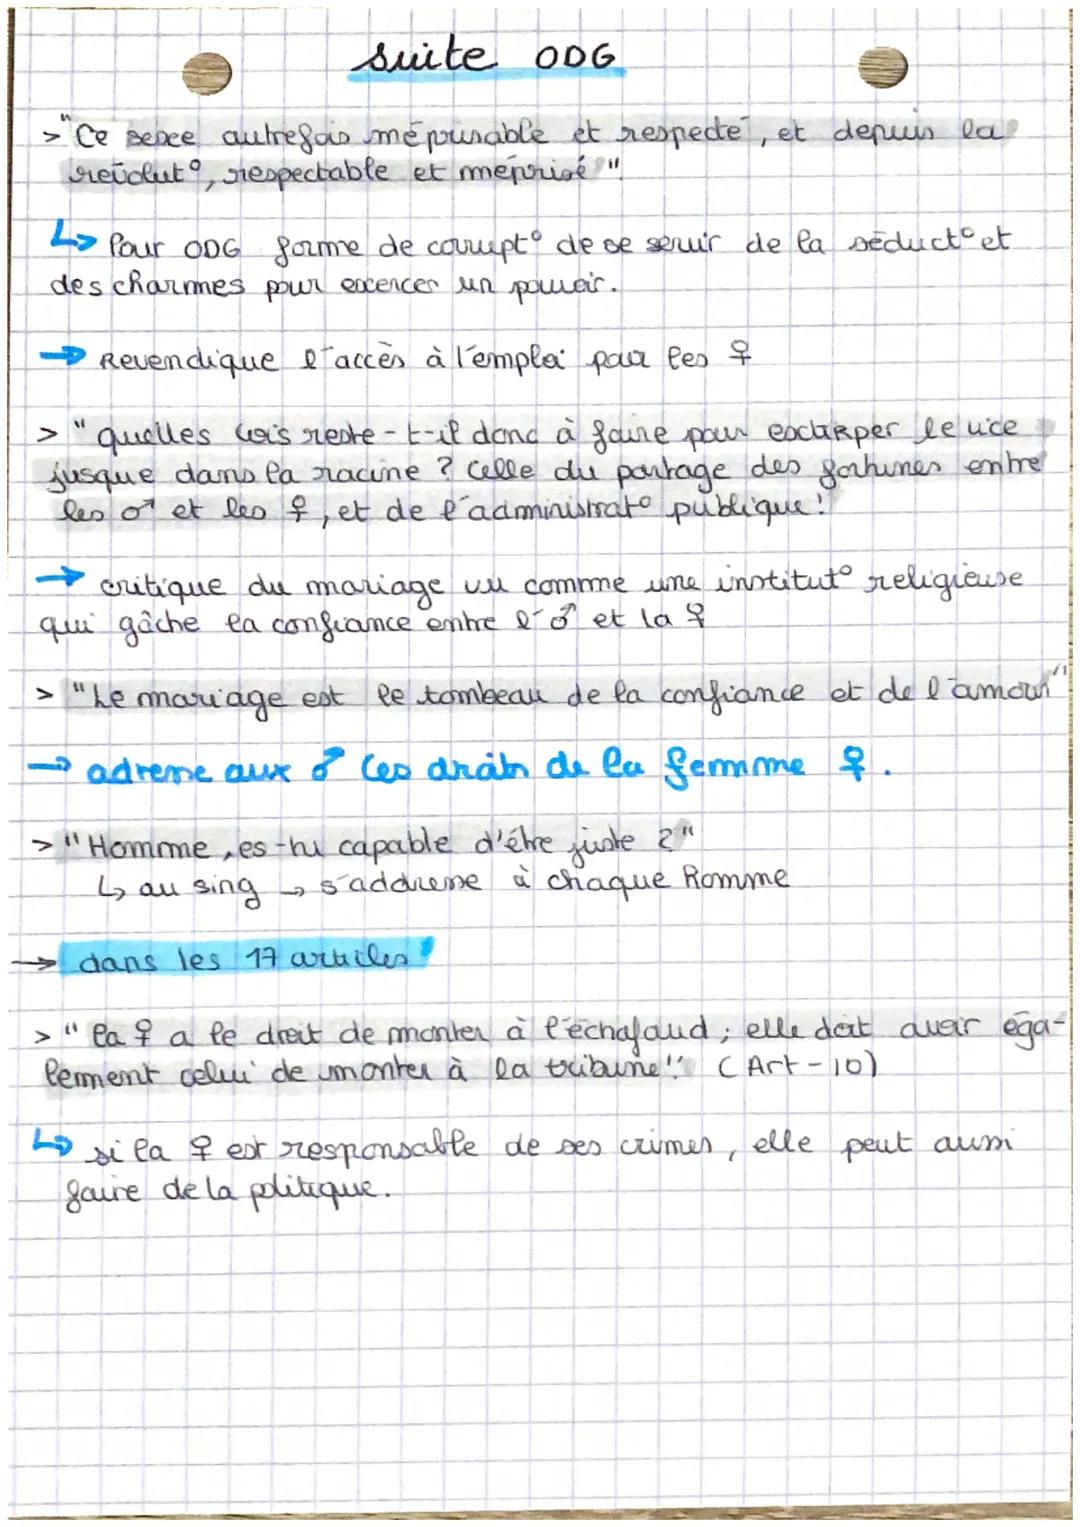 suite ODG
> "Ce sexe autrefois méprisable et respecté, et depuis la
révolut°, respectable et méprisé".
↳ Pour ODG forme de corrupt° de se servir de la séduct° et
des charmes pour exercer un pouvoir.
→ Revendique l'accès à l'emploi pour les ♀
> "quelles lois reste-t-il donc à faire pour extirper le vice
jusque dans la racine ? Celle du partage des fortunes entre
les ♂ et les ♀, et de l'administrat° publique!
→ critique du mariage vu comme une institut° religieuse
qui gâche la confiance entre l'♂ et la ♀
> "Le mariage est le tombeau de la confiance et de l'amour"
→ adresse aux ♂ les droits de la femme ♀.
> "Homme, es-tu capable d'être juste ?"
↳ au sing → s'addresse à chaque homme
→ dans les 17 articles
> "la ♀ a le droit de monter à l'échafaud ; elle doit avoir éga-
lement celui de monter à la tribune". (Art-10)
↳ si la ♀ est responsable de ses crimes, elle peut aussi
faire de la politique.